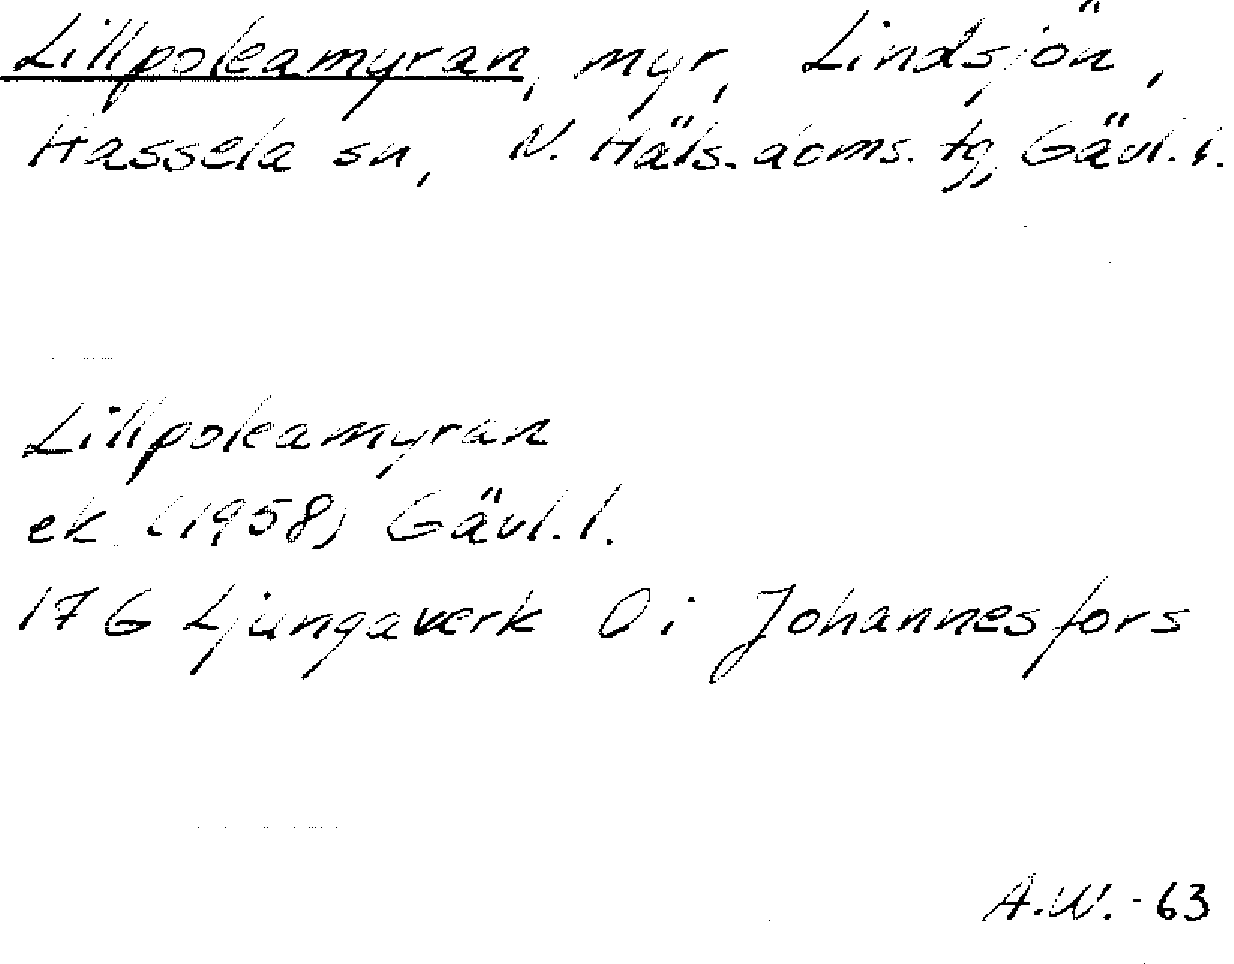 Lillpoleamyran, myr, Lindsjön,
Hassela sn, N. Häls. doms. tg, Gävl. l.
Lillpoleamyran
ek (1958) Gävl. l.
17 G Ljungaverk 0 i Johannesfors
A.W. - 63